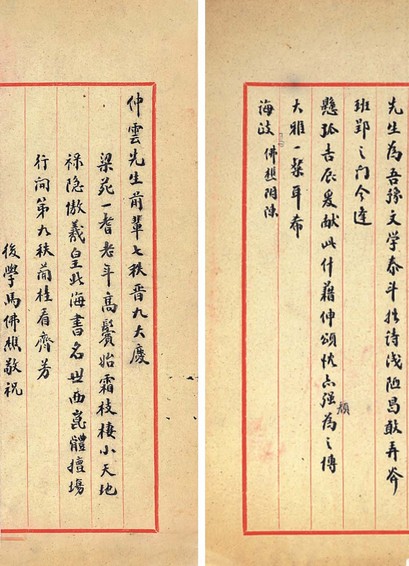 仲雲先生前輩七秩晉九大慶
梁苑一耆老年高鬢始霜枝棲小天地
祿隐傲羲皇北海書名世西崑體擅塲
行開第九秩蘭桂看齊芳
後學馬佛樵敬祝
先生為吾豫文學泰斗拙詩淺陋曷敢弄斧
班郢之門今逢
懸弧吉辰爰献此什藉伸頌忱亦强顔為之博
大雅一粲耳希
海政 佛樵附陳